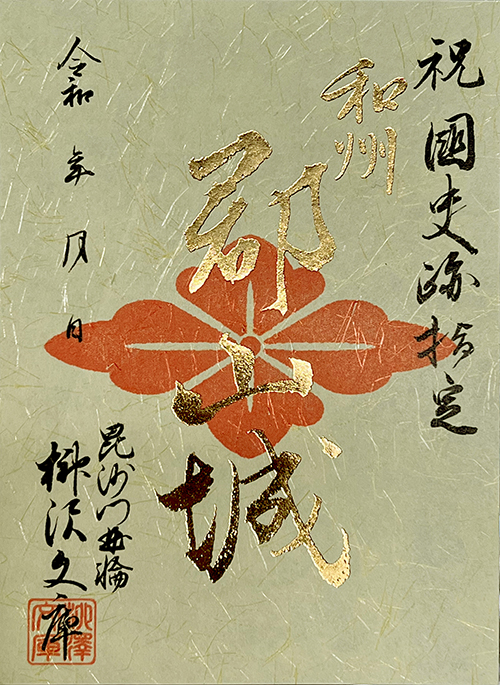 祝國史跡指定
和州
郡山城
令和 年 月 日
毘沙門曲輪
柳沢文庫
柳澤文庫